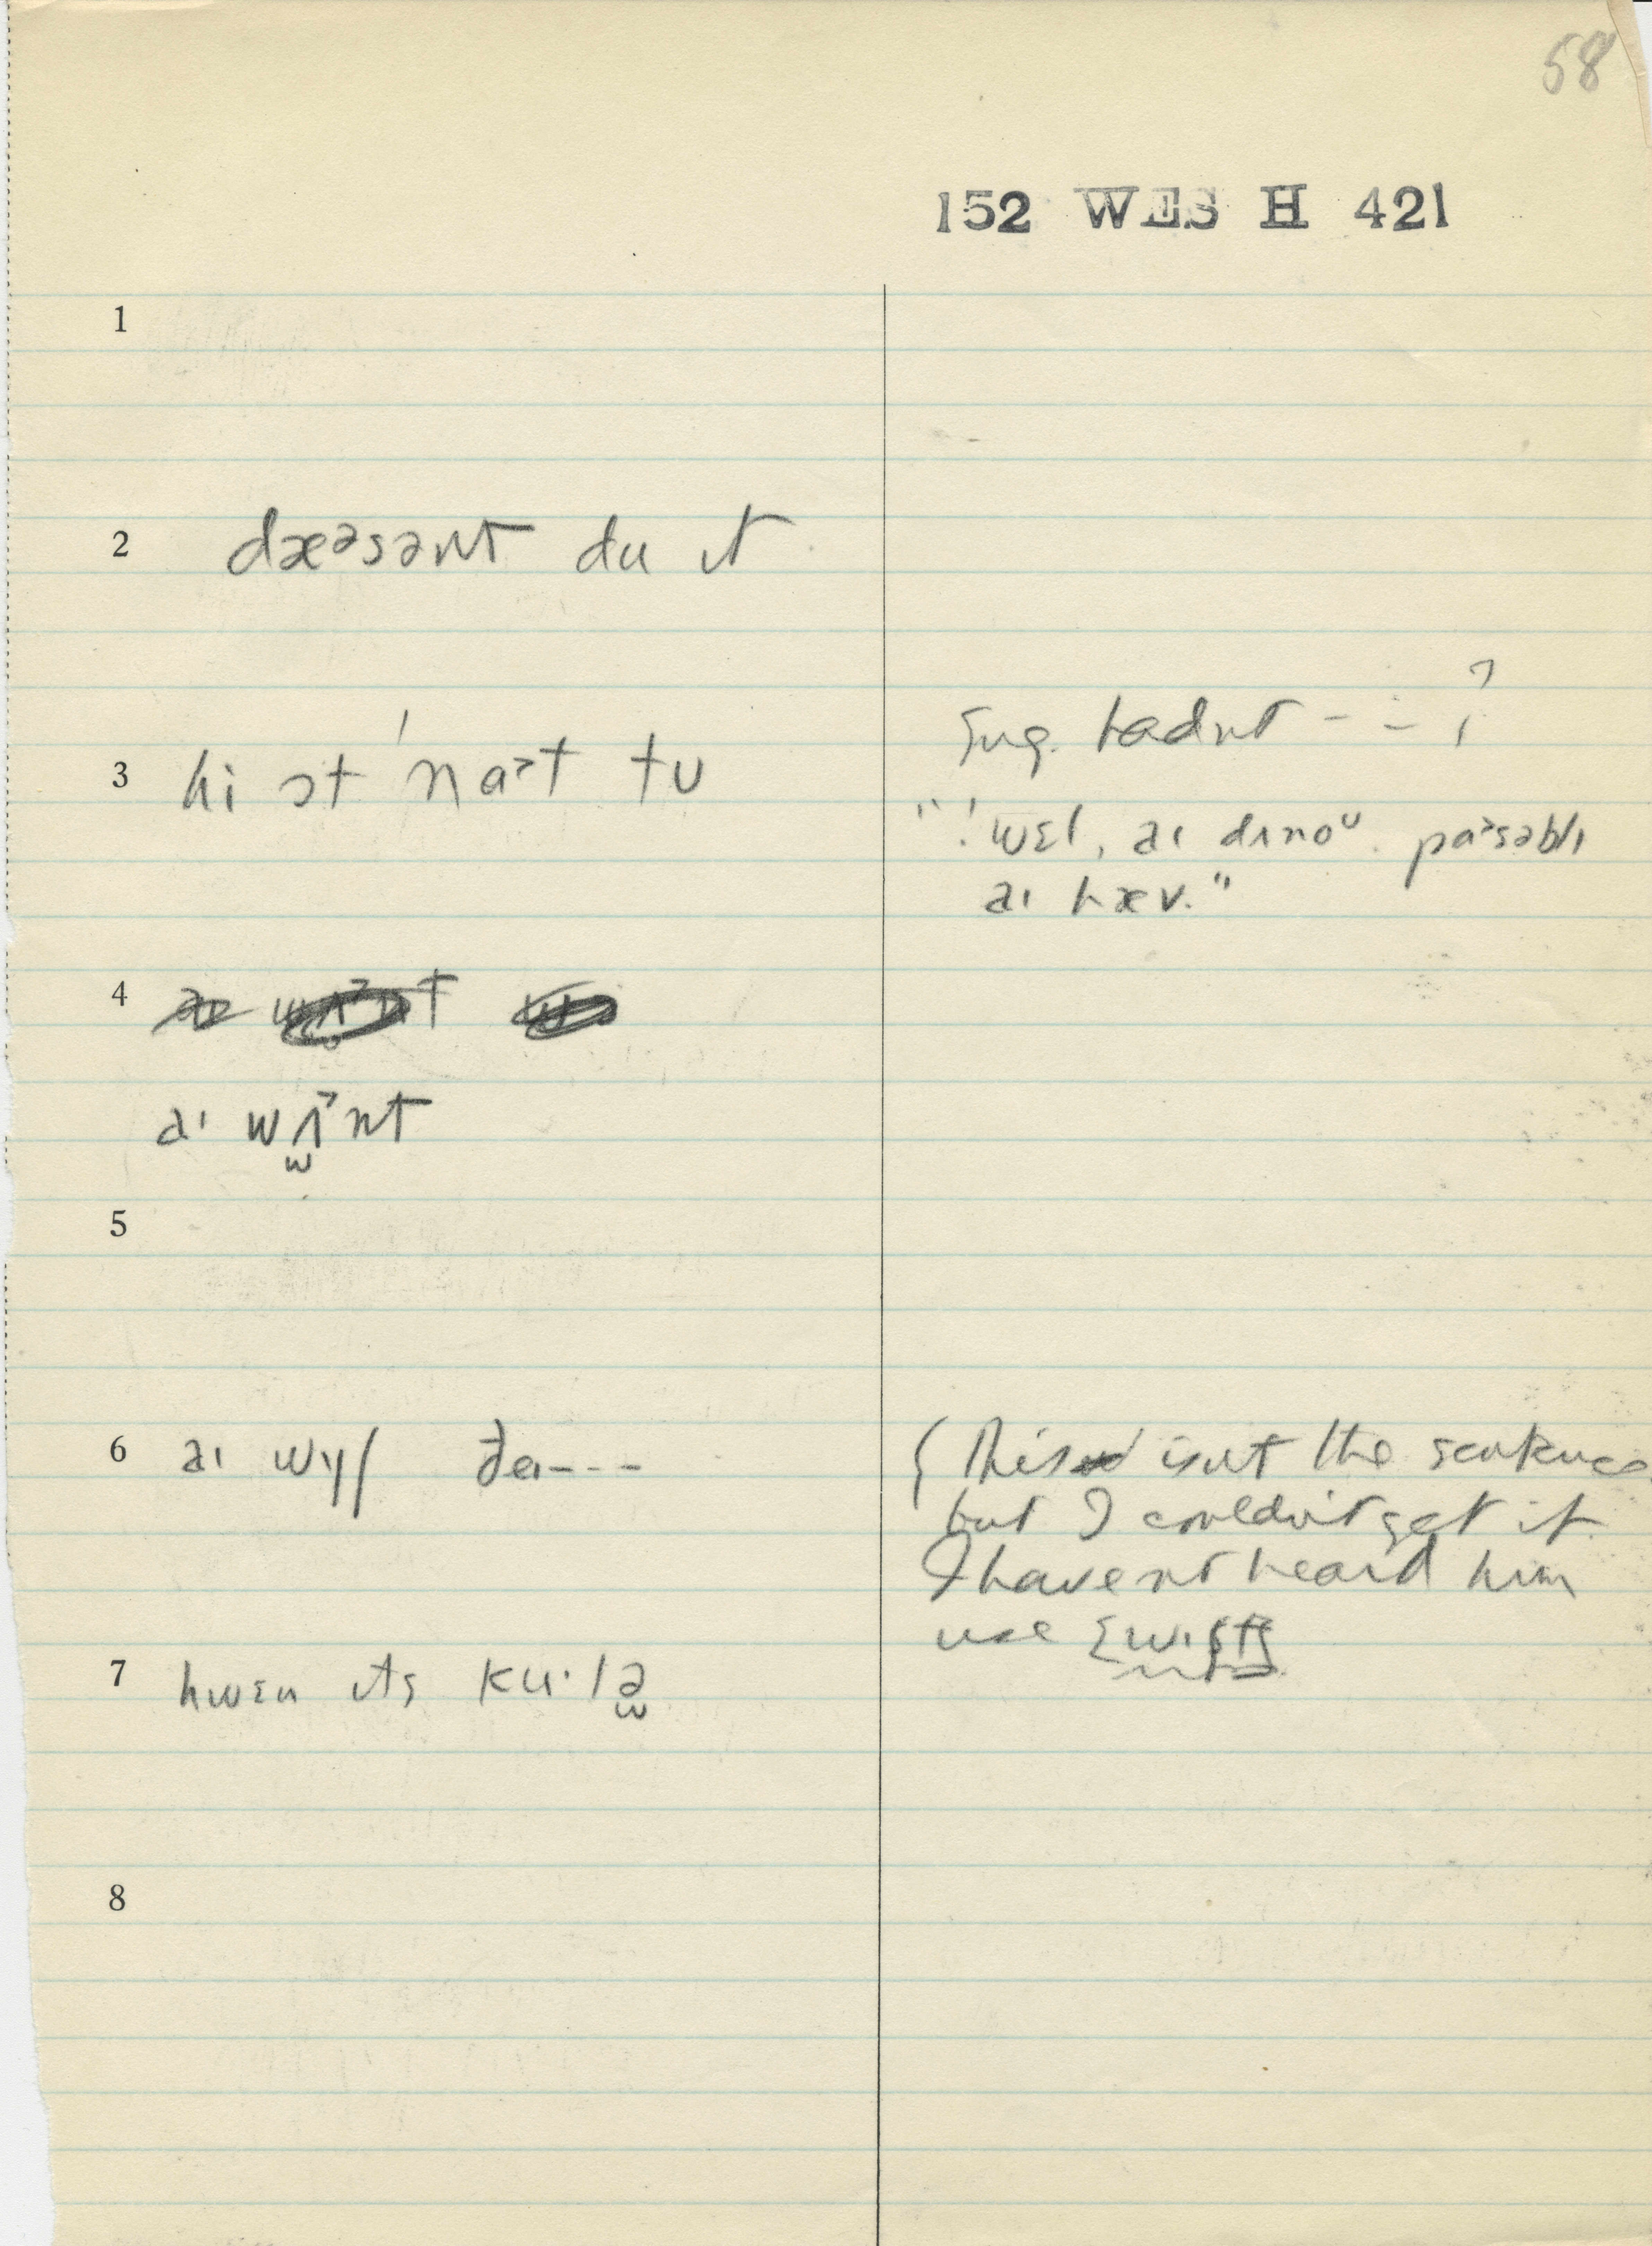 58
152 WES H 421
1
2 dæᵊsənt du ɪt
3 hi ɔt ˈnaᵊt tu
hadnt - - - ?
"ˈwɛl, aɪ dʌnoᵁ. pasəblɪ
aɪ hæv."
4
aɪ wʌnt
5
6 aɪ wɪʃ ðeɪ---
( This isn't the sentence
but I couldn't get it.
I haven't heard him
use
7 hwɛn ɪts ku·lə
8